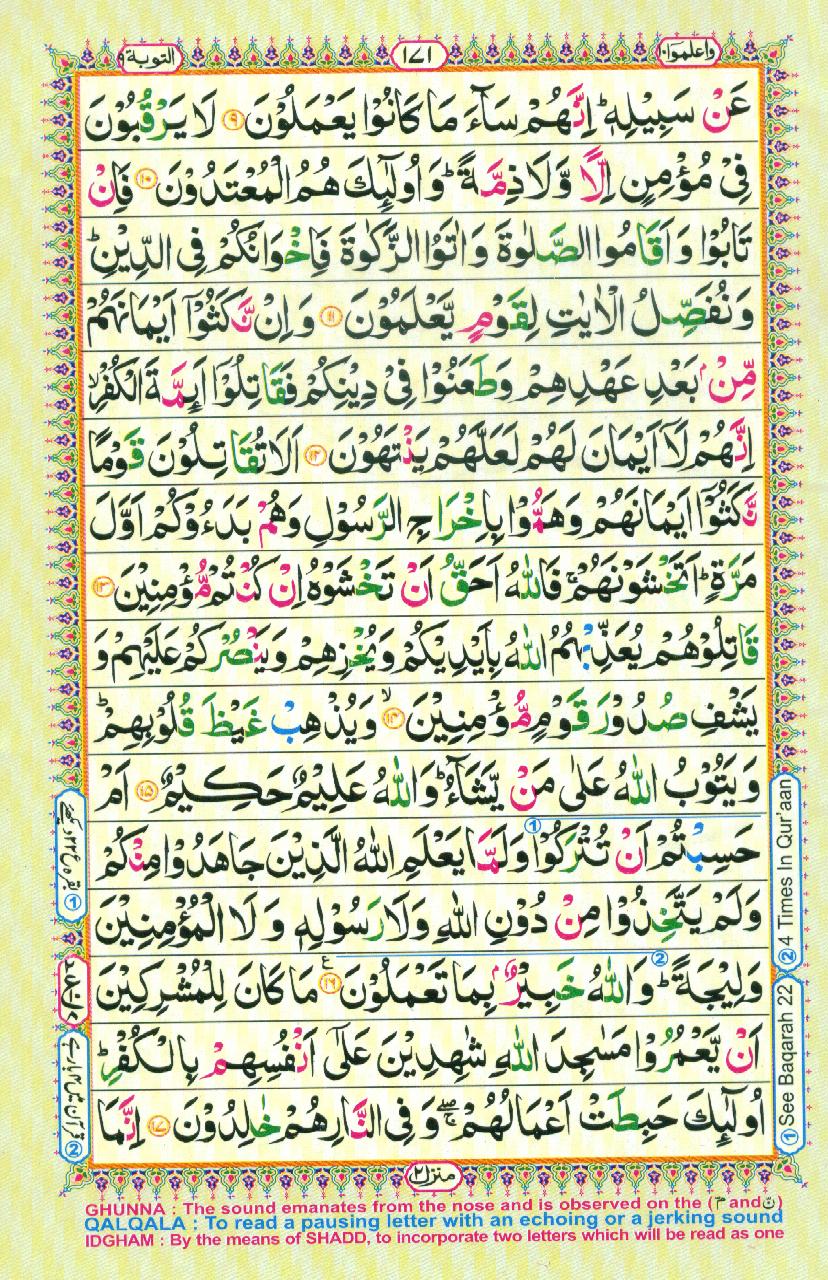 التوبة ۹
۱۷۱
واعلموا ۱۰
عَنْ سَبِیْلِهٖؕ اِنَّهُمْ سَآءَ مَا كَانُوْا یَعْمَلُوْنَ ۹ لَا یَرْقُبُوْنَ
فِیْ مُؤْمِنٍ اِلًّا وَّلَا ذِمَّةًؕ وَاُولٰٓىِٕكَ هُمُ الْمُعْتَدُوْنَ ۱۰ فَاِنْ
تَابُوْا وَاَقَامُوا الصَّلٰوةَ وَاٰتَوُا الزَّكٰوةَ فَاِخْوَانُكُمْ فِی الدِّیْنِؕ
وَنُفَصِّلُ الْاٰیٰتِ لِقَوْمٍ یَّعْلَمُوْنَ ۱۱ وَاِنْ نَّكَثُوْۤا اَیْمَانَهُمْ
مِّنْۢ بَعْدِ عَهْدِهِمْ وَطَعَنُوْا فِیْ دِیْنِكُمْ فَقَاتِلُوْۤا اَىِٕمَّةَ الْكُفْرِۙ
اِنَّهُمْ لَاۤ اَیْمَانَ لَهُمْ لَعَلَّهُمْ یَنْتَهُوْنَ ۱۲ اَلَا تُقَاتِلُوْنَ قَوْمًا
نَّكَثُوْۤا اَیْمَانَهُمْ وَهَمُّوْا بِاِخْرَاجِ الرَّسُوْلِ وَهُمْ بَدَءُوْكُمْ اَوَّلَ
مَرَّةٍؕ اَتَخْشَوْنَهُمْۚ فَاللّٰهُ اَحَقُّ اَنْ تَخْشَوْهُ اِنْ كُنْتُمْ مُّؤْمِنِیْنَ ۱۳
قَاتِلُوْهُمْ یُعَذِّبْهُمُ اللّٰهُ بِاَیْدِیْكُمْ وَیُخْزِهِمْ وَیَنْصُرْكُمْ عَلَیْهِمْ وَ
یَشْفِ صُدُوْرَ قَوْمٍ مُّؤْمِنِیْنَۙ ۱۴ وَیُذْهِبْ غَیْظَ قُلُوْبِهِمْؕ
وَیَتُوْبُ اللّٰهُ عَلٰی مَنْ یَّشَآءُؕ وَاللّٰهُ عَلِیْمٌ حَكِیْمٌ ۱۵ اَمْ
حَسِبْتُمْ اَنْ تُتْرَكُوْا وَلَمَّا یَعْلَمِ اللّٰهُ الَّذِیْنَ جَاهَدُوْا مِنْكُمْ
①
وَلَمْ یَتَّخِذُوْا مِنْ دُوْنِ اللّٰهِ وَلَا رَسُوْلِهٖ وَلَا الْمُؤْمِنِیْنَ
وَلِیْجَةًؕ وَاللّٰهُ خَبِیْرٌۢ بِمَا تَعْمَلُوْنَ ۱۶ ع مَا كَانَ لِلْمُشْرِكِیْنَ
②
اَنْ یَّعْمُرُوْا مَسٰجِدَ اللّٰهِ شٰهِدِیْنَ عَلٰۤی اَنْفُسِهِمْ بِالْكُفْرِؕ
اُولٰٓىِٕكَ حَبِطَتْ اَعْمَالُهُمْ ۖۚ وَفِی النَّارِ هُمْ خٰلِدُوْنَ ۱۷ اِنَّمَا
②4 Times In Qur'aan
①See Baqarah 22
منزل ۲
GHUNNA : The sound emanates from the nose and is observed on the (مّ and نّ)
QALQALA : To read a pausing letter with an echoing or a jerking sound
IDGHAM : By the means of SHADD, to incorporate two letters which will be read as one